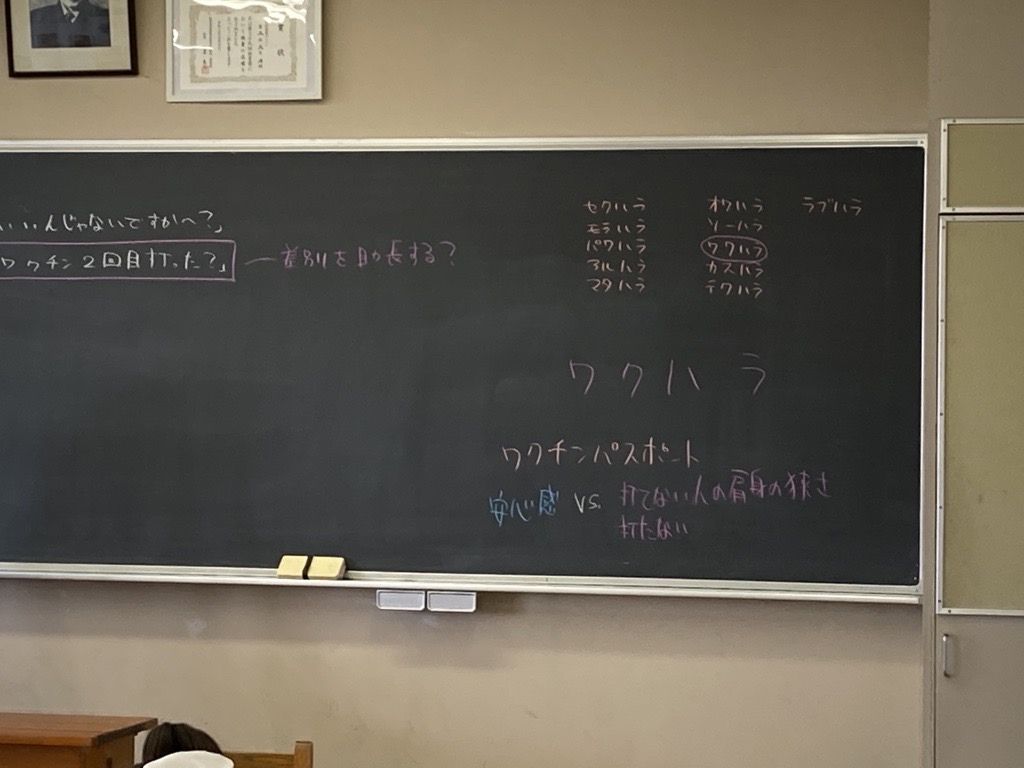 賞状
いいんじゃないですかへ？」
ワクチン2回目打った？」 ― 差別を助長する？
セクハラ
モラハラ
パワハラ
アルハラ
マタハラ
オワハラ
ソーハラ
ワクハラ
カスハラ
テクハラ
ラブハラ
ワクハラ
ワクチンパスポート
安心感 VS. 打てない人の肩身の狭さ
打たない